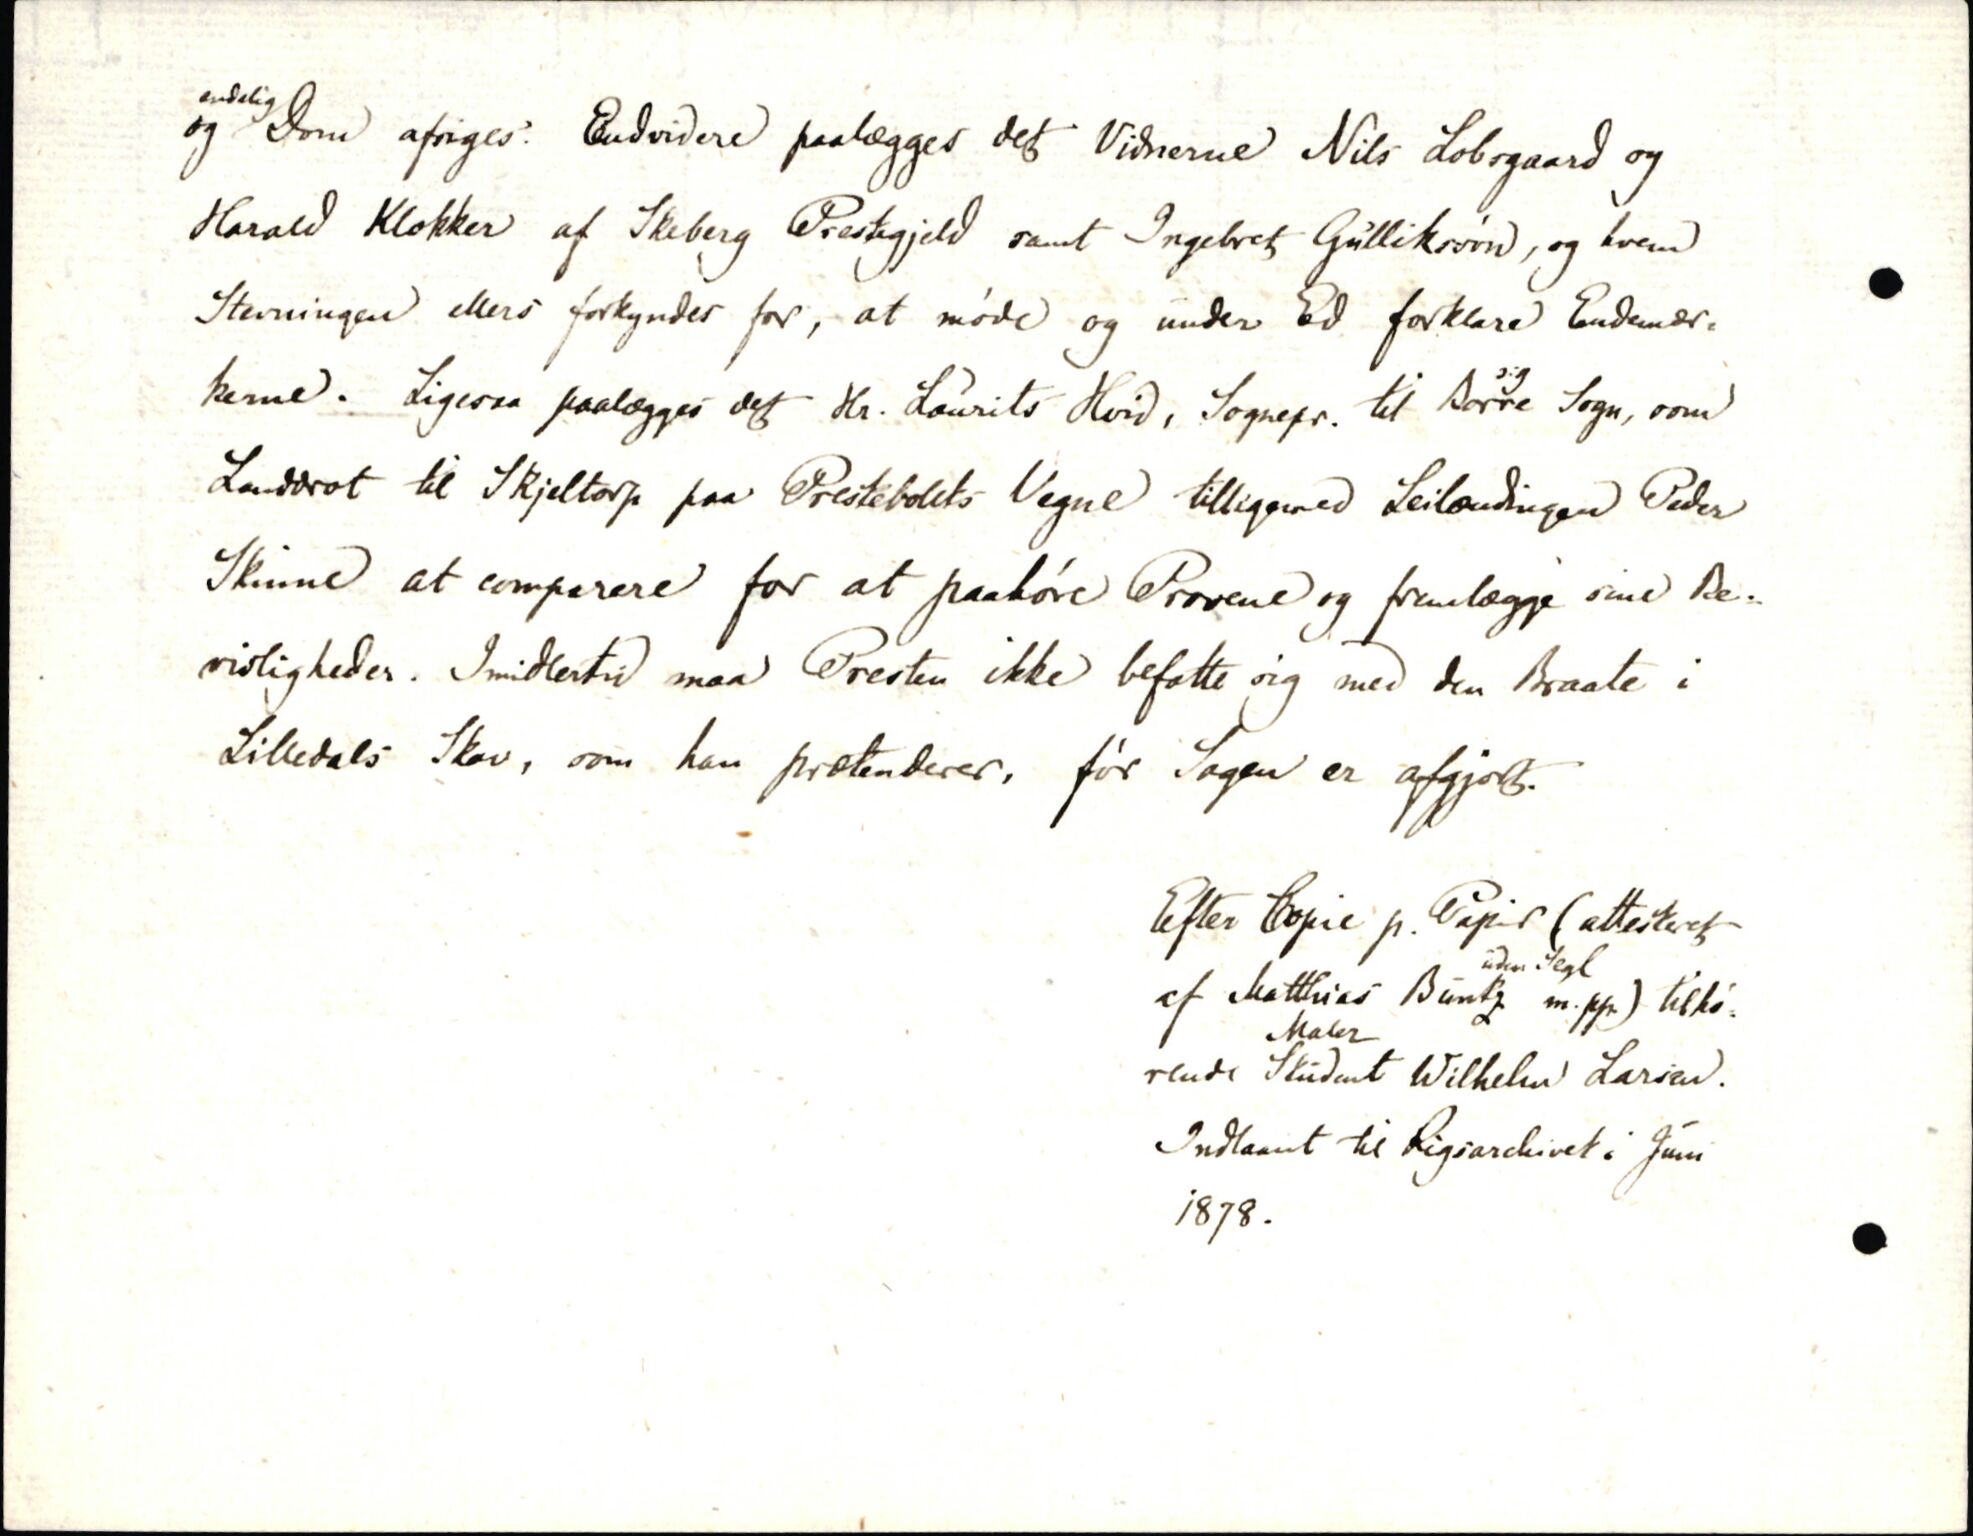 endelig
og Dom afsiges. Endvidere paalægges det Vidnerne Nils Lobsgaard og
Harald Klokker af Skeberg Prestegjeld samt Ingebret Gulliksøn, og hvem
Stevningen ellers forkyndes for, at møde og under Ed forklare Endemær-
kerne. Ligesaa paalægges det Hr. Laurits Hvid, Sognepr. til Borre Sogn, som
Landdrot til Skjeltorp paa Prestebolets Vegne tilligemed Leilændingen Peder
Skinne at comparere for at paahøre Prøvene og fremlægge sine Be-
visligheder. Imidlertid maa Presten ikke befatte sig med den Braate i
Lilledals Skov, som han prætenderer, før Sagen er afgjort.
Efter Copie p. Papir (attesteret
uden Segl
af Matthias Buntz m.pp.) tilhø-
Maler
rende Student Wilhelm Larsen.
Indlaant til Rigsarchivet i Juni
1878.